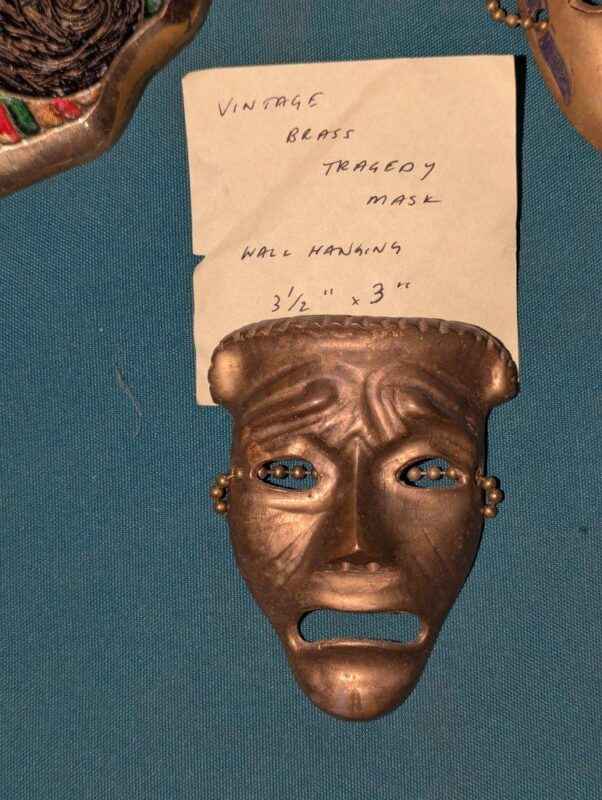 VINTAGE
BRASS
TRAGEDY
MASK
WALL HANGING
3 1/2 " x 3 "